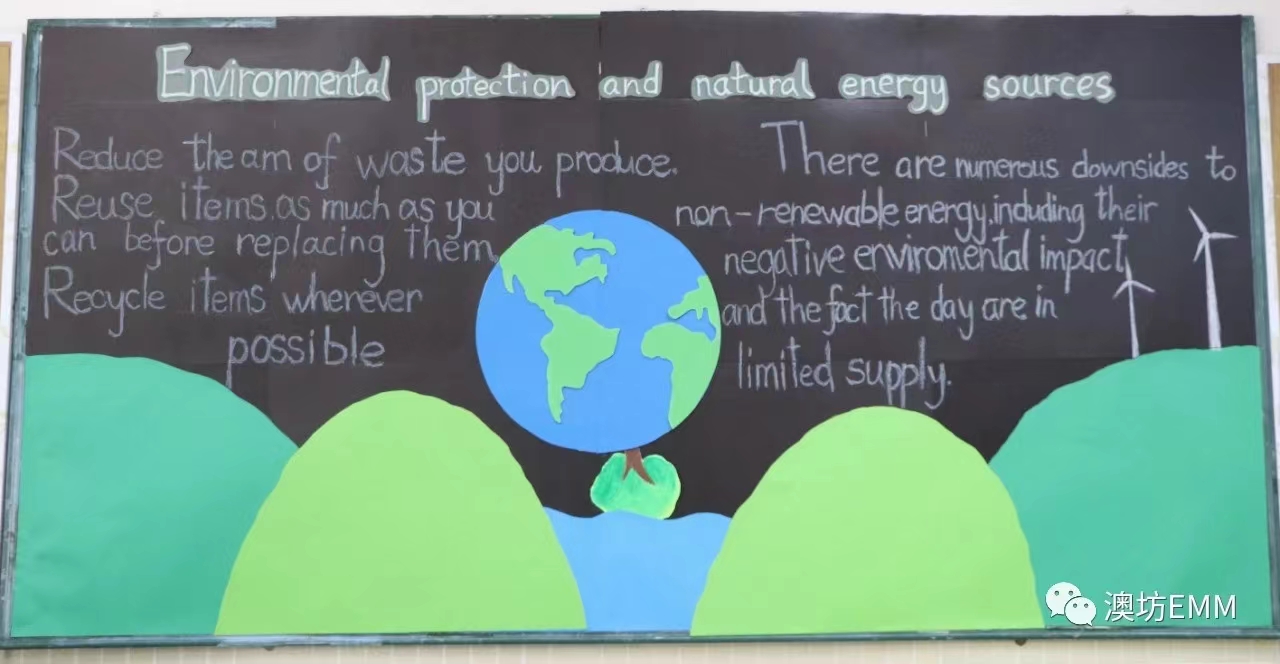 Environmental protection and natural energy sources
Reduce the am of waste you produce.
Reuse items.as much as you
can before replacing them
Recycle items wherever
possible
There are numerous downsides to
non-renewable energy,including their
negative enviromental impact,
and the fact the day are in
limited supply.
澳坊EMM